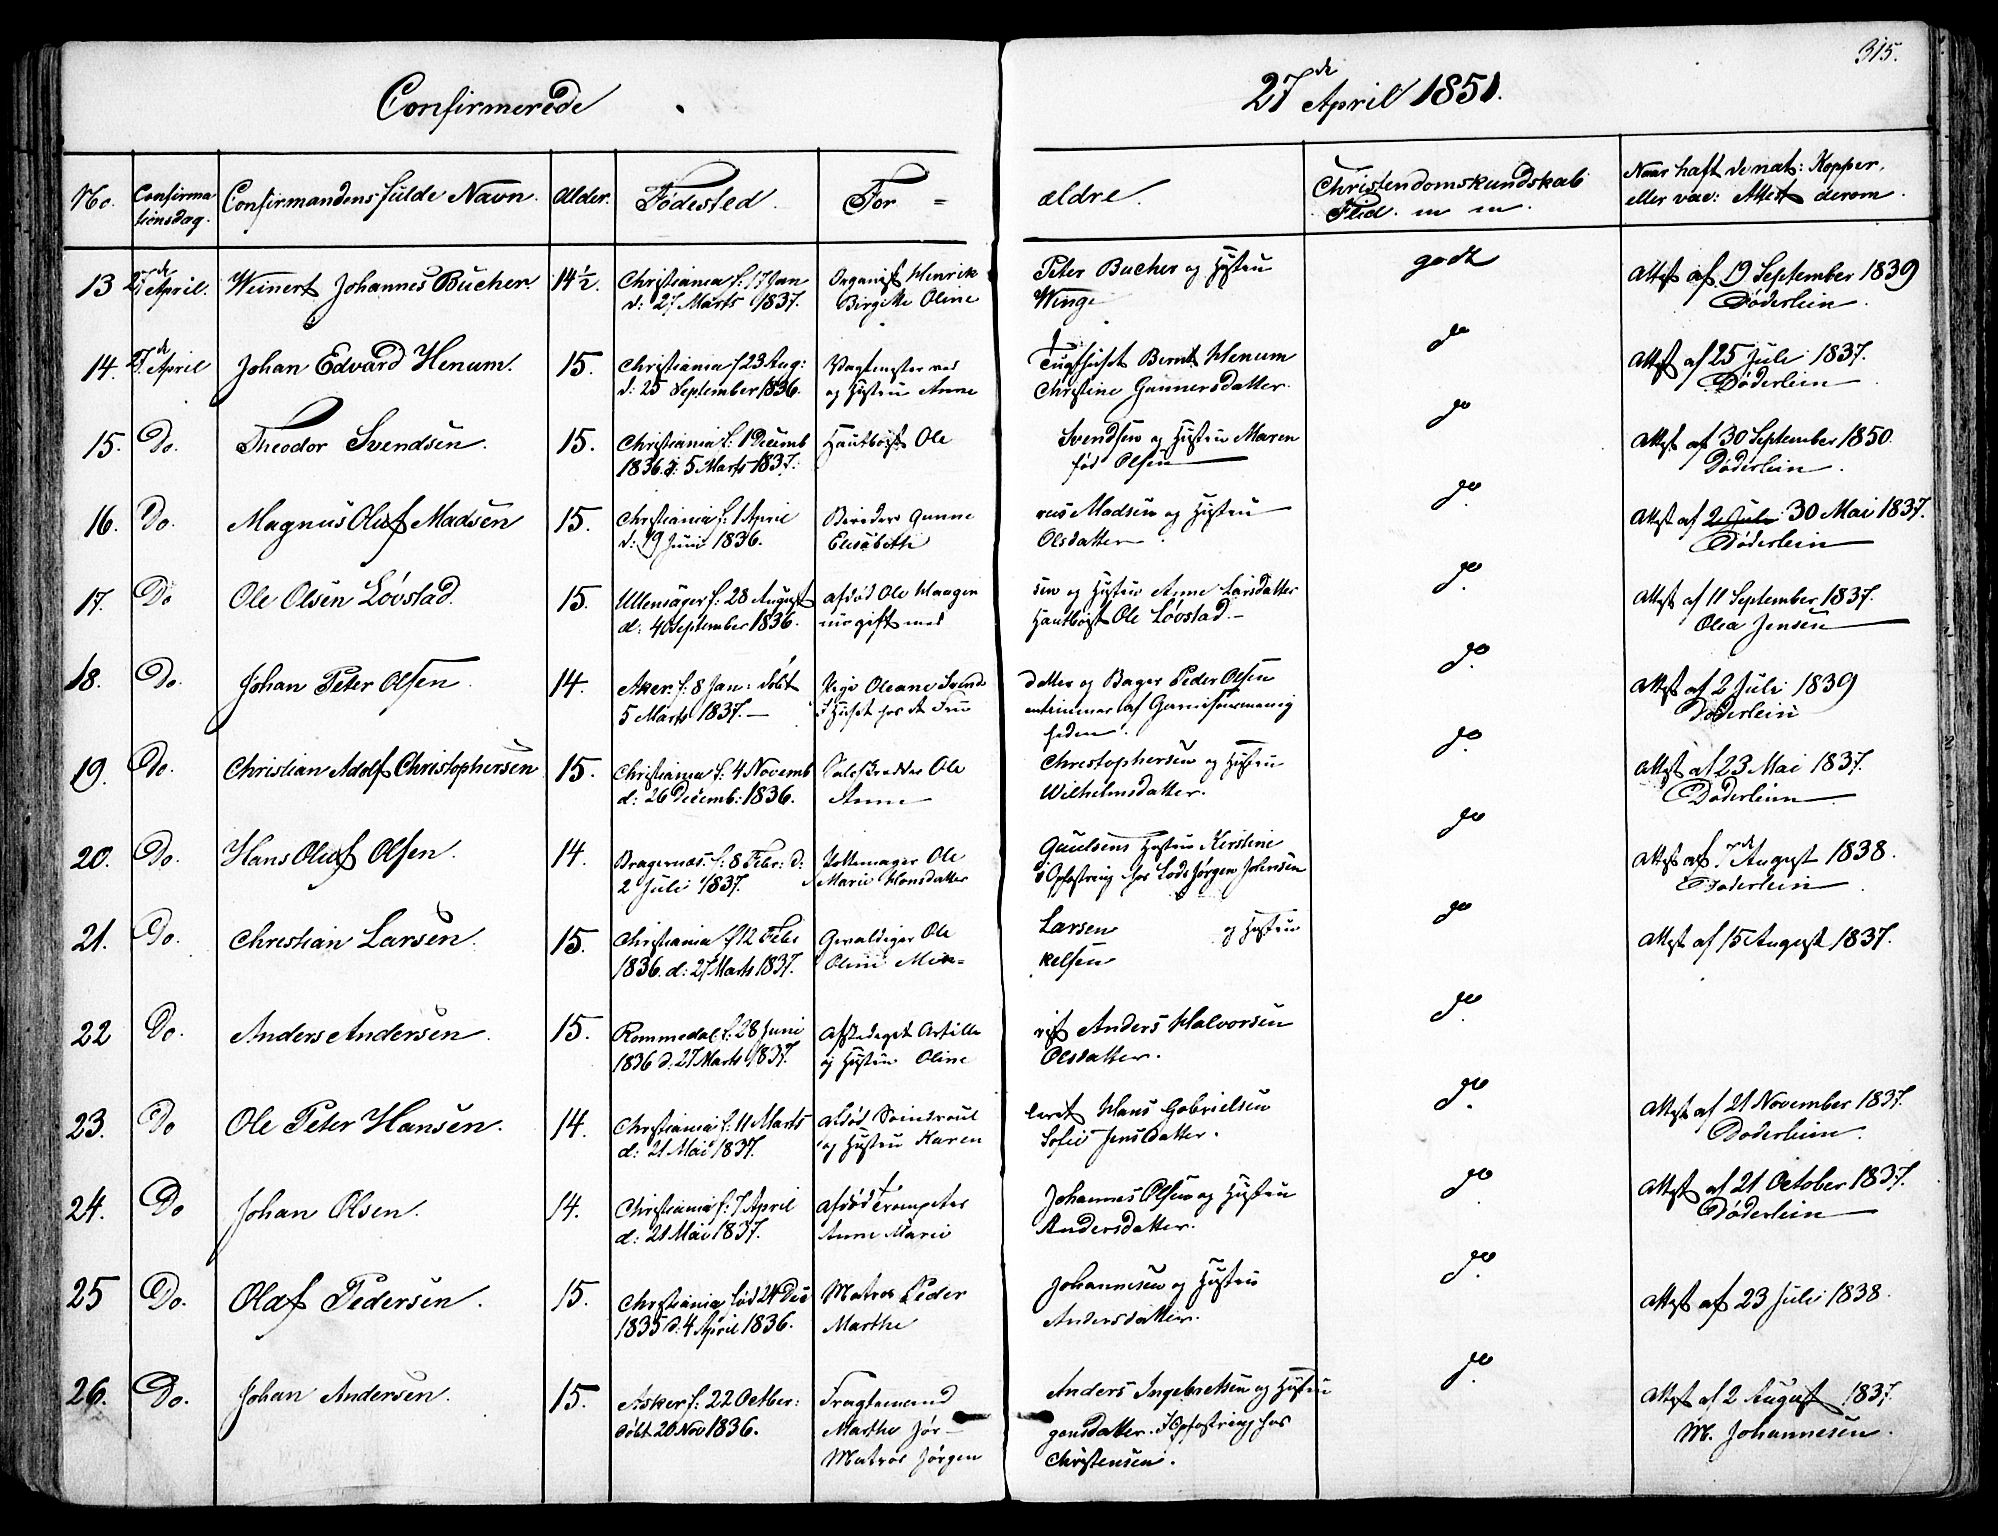 315.
Confirmerede
27de April 1851.
No. Confirmationsdag. Confirmandens fulde Navn. Alder. Fødested. For = ældre. Christendomskundskab Flid. m m. Naar haft de nat: Kopper, eller vac: Attest derom.
13 27de April. Weinert Johannes Bucher 14 1/2. Christiania f: 17 Jan Organist Henrik Peter Bucher og Hustru godt Attest af 19 September 1839
d: 27 Marts 1837. Birgitte Oline Winge Døderlein.
14. 27de April Johan Edvard Henum. 15. Christiania f 23 Aug: Vagtmester ved Tugthuset Bernt Henum do Attest af 25 Juli 1837.
d: 25 September 1836. og Hustru Anne Christine Gunnersdatter. Døderlein
15. Do. Theodor Svendsen. 15. Christiania f: 1 Decemb Hautboist Ole Svendsen og Hustru Maren do Attest af 30 September 1850.
1836. d: 5 Marts 1837. fød Olsen Døderlein.
16. Do. Magnus Oluf Madsen 15. Christiania f: 1 April Berider Gunne rius Madsen og Hustru do. Attest af 2 Juli 30 Mai 1837.
d: 19 Juni 1836. Elisabeth Olsdatter. Døderlein
17. Do Ole Olsen Løvstad. 15. Ullensager f: 28 August afdød Ole Haagen sen og Hustru Anne Larsdatter do. Attest af 11 September 1837.
d: 4 September 1836. nu gift med Hautboist Ole Løvstad. Olea Jensen
18. Do. Johan Peter Olsen. 14. Aker f: 8 Jan: døbt Pige Oleane Svends datter og Bager Peder Olsen do. Attest af 2 Juli 1839
5 Marts 1837. I Huset hos af Garnisonsmenig Døderlein
heden.
19. Do. Christian Adolf Christophersen 15. Christiania f. 4 Novemb Ole Christophersen og Hustru do. Attest af 23 Mai 1837.
d: 26 Decemb: 1836. Anne Wilhelmsdatter. Døderlein
20. Do. Hans Oluf Olsen. 14. Bragernæs. f: 8 Febr: d: Pottemager Ole Paulsens Hustru Kirstine do Attest af 7de August 1838.
2 Juli 1837. Marie Hansdatter i Opfostring hos Lods Jørgen Johnsen Døderlein
21. Do. Christian Larsen. 15. Christiania f 12 Febr Gevaldiger Ole Larsen og Hustru do Attest af 15 August 1837.
1836. d: 27 Marts 1837. Oline Mik= kelsen
22 Do. Anders Andersen. 15. Rommedal f: 28 Juni Afskediget Artille rist Anders Halvorsen do.
1836 d: 27 Marts 1837. og Hustru Oline Olsdatter.
23. Do Ole Peter Hansen. 14. Christiania f: 11 Marts afdød Hans Gabrielsen do. Attest af 21 November 1837.
d: 21 Mai 1837. og Hustru Karen Sofie Jensdatter. Døderlein.
24. Do Johan Olsen. 14. Christiania f: 7 April afdød Trompeter Johannes Olsen og Hustru do Attest af 21 October 1837.
d: 21 Mai 1837. Anne Marie Andersdatter. Døderlein
25 Do. Olaf Pedersen. 15. Christiania fød 24 Dec Matros Peder Johannesen og Hustru do. Attest af 23 Juli 1838.
1835 d. 4 April 1836. Marthe Andersdatter.
26. Do. Johan Andersen. 15. Asker f: 22 October: Fragtemand Anders Ingebretsen og Hustru do. Attest af 2 August 1837.
døbt 20 Nov 1836. Marthe Jør- gensdatter. I Opfostring hos M. Johannesen.
Matros Jørgen Christensen.